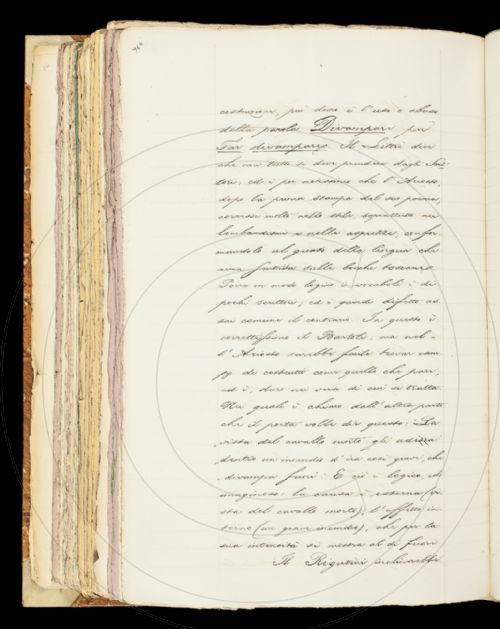 costruzione, più duro è l'uso o abuso
della parola Divampare per
Far divampare. Il Littré dice
che non tutto si deve prendere dagli Au-
tori; ed è poi notissimo che l'Ariosto,
dopo la prima stampa del suo poema,
corresse molto nello stile, soprattutto nei
lombardismi e nelle asprezze, confor-
mandolo al gusto della lingua che
aveva sentita sulle bocche toscane.
Porre in modo logico i vocaboli è di
pochi scrittori; ed è grande difetto as-
sai comune il contrario. In questo è
correttissimo il Bartoli; ma nel-
l'Ariosto sarebbe facile trovar esem-
pj di costrutti come quello che pare,
ed è, duro nei versi di cui si tratta.
Nei quali è chiaro dall'altra parte
che il poeta volle dir questo: La
vista del cavallo morto gli adizza
dentro un incendio d'ira così grave, che
divampa fuori. E ciò è logico, ed
imaginoso: la causa è esterna (vi-
sta del cavallo morto); l'effetto in-
terno (un grave incendio), che per la
sua intensità si mostra al di fuori.
Il Rigutini